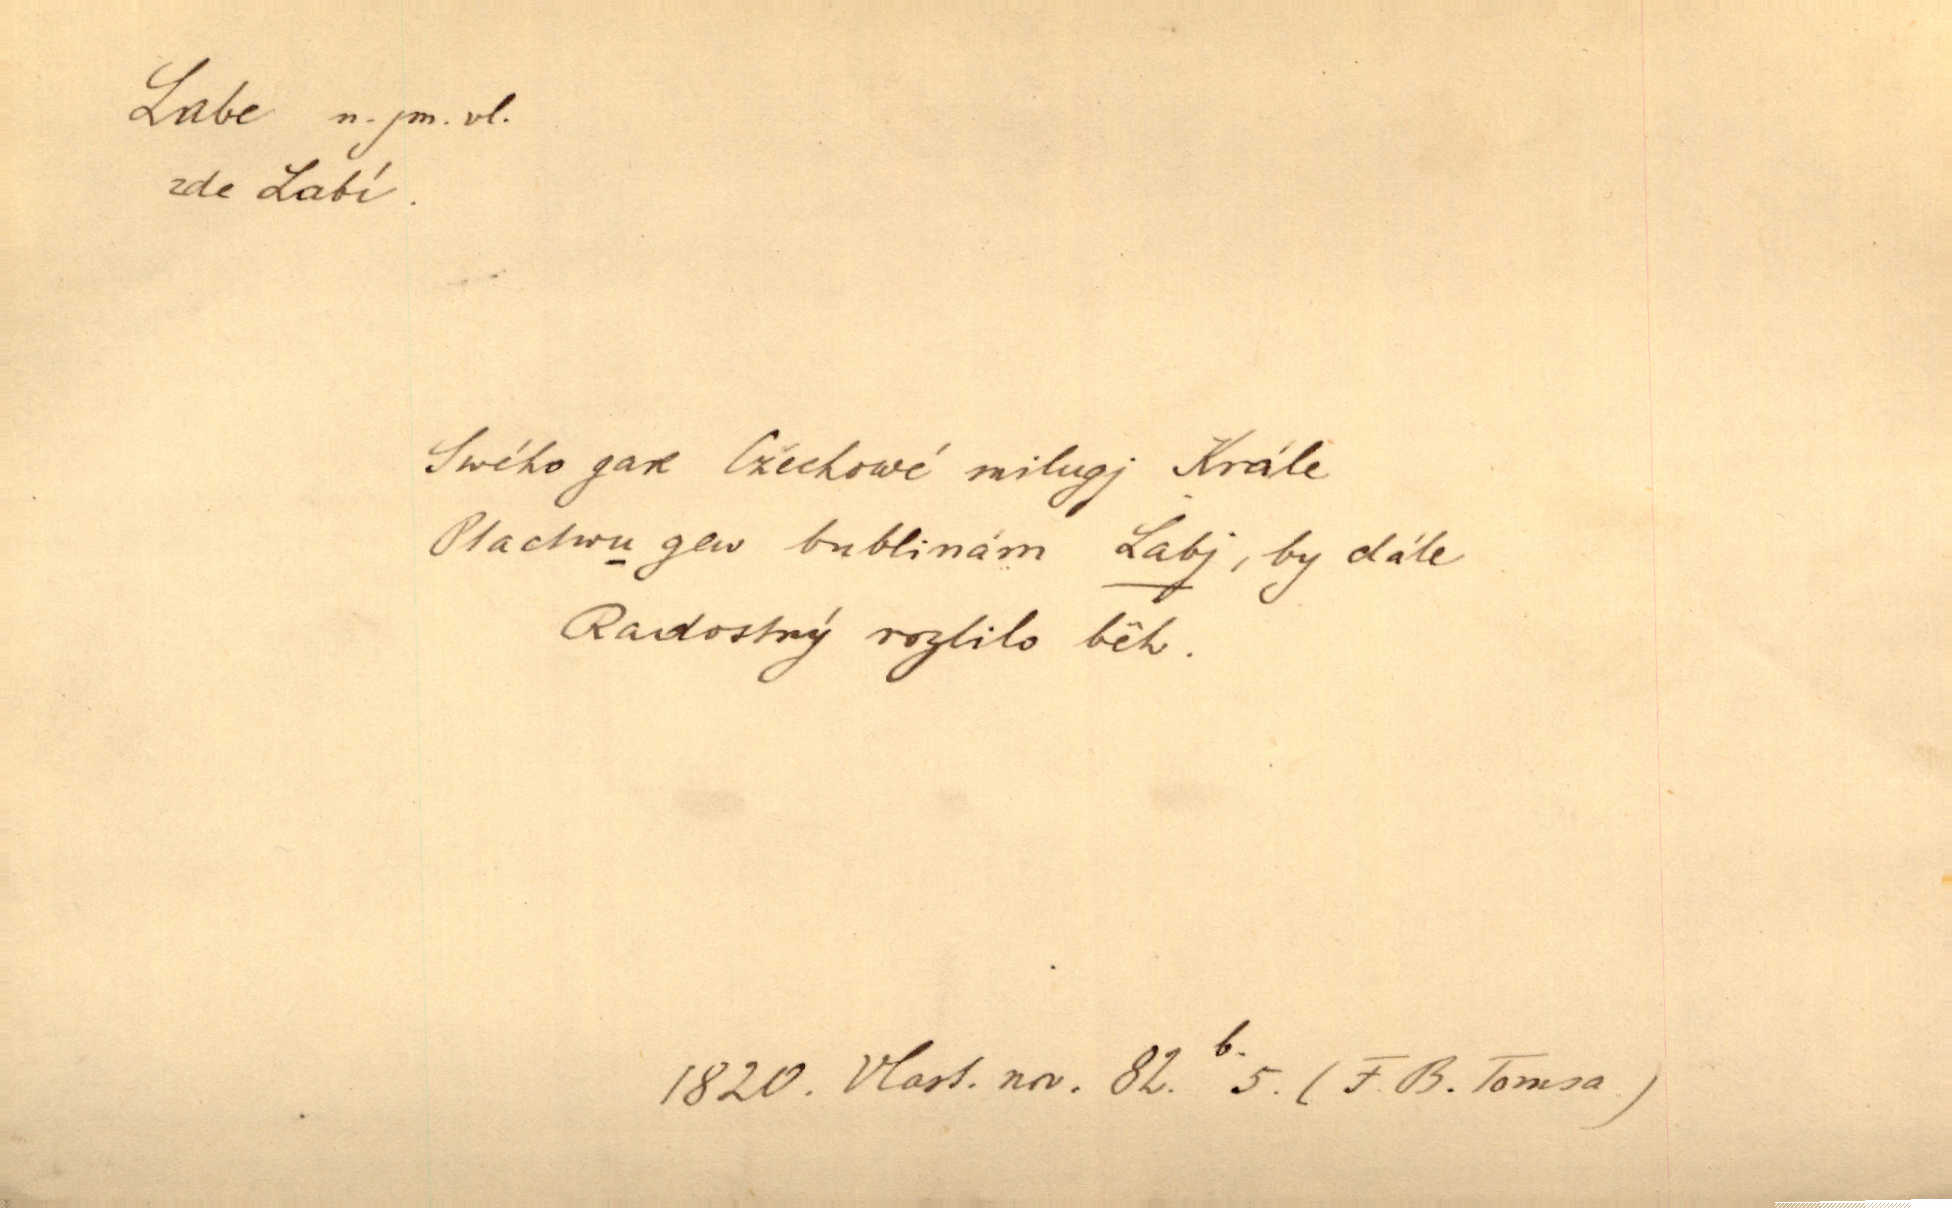 Labe n. jm. vl.
zde Labí.
Swého gak Cžechowé milugj Krále
Ptactwu gew bublinám Labj, by dále
Radostný rozlilo běh.
1820. Vlast. nov. 82. b. 5. (F. B. Tomsa)